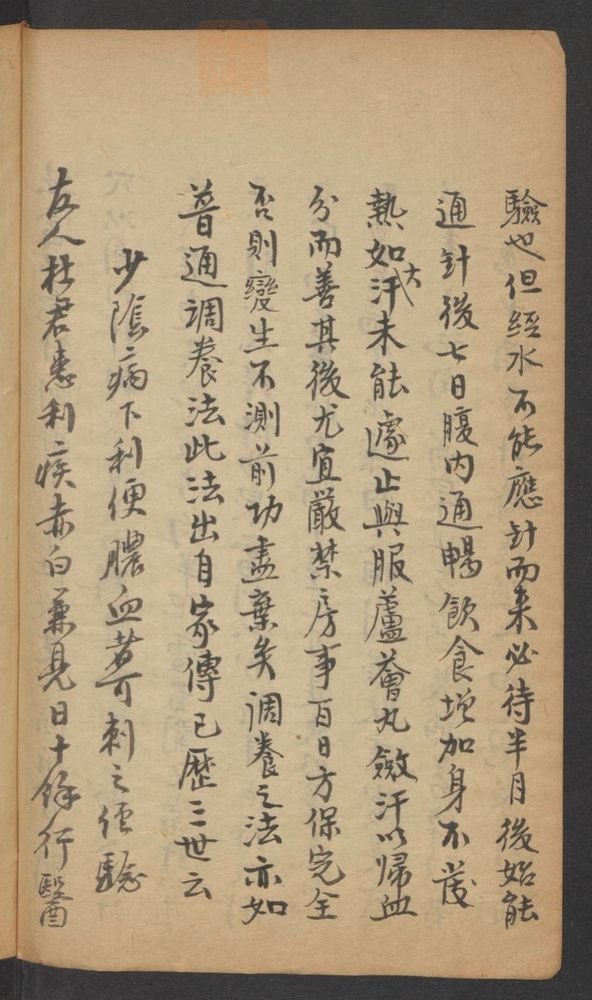 驗也但經水不能應針而來必待半月後始能
通針後七日腹内通暢飲食增加身不發
熱如大汗未能遽止與服蘆薈丸斂汗以歸血
分而善其後尤宜嚴禁房事百日方保完全
否則變生不測前功盡棄矣調養之法亦如
普通調養法此法出自家傳已歷三世云
少陰病下利便膿血者可刺之經驗
友人杜君患利疾赤白兼見日十餘行醫